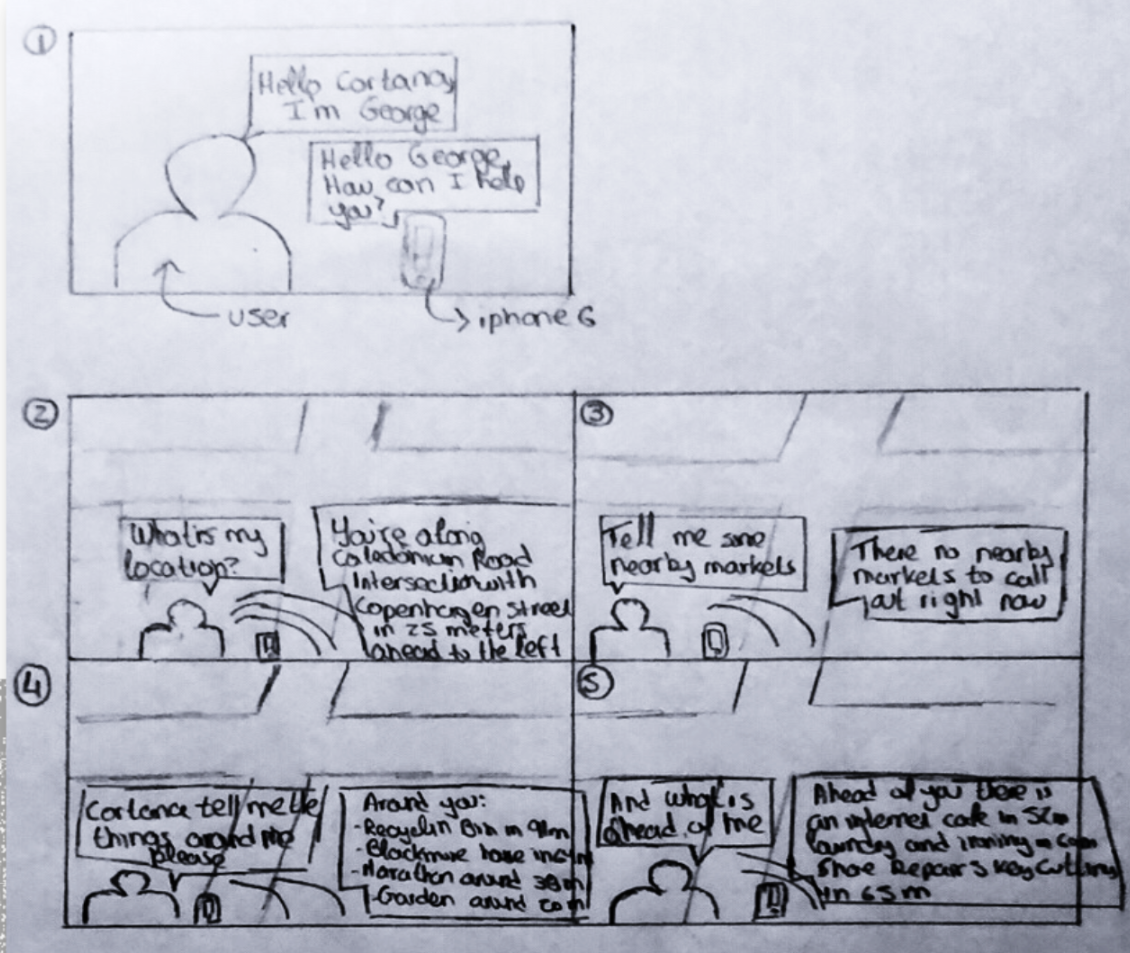 1
Hello Cortana,
I'm George
Hello George,
How can I help
you?
user
iphone 6
2
What is my
location?
You're along
Caledonian Road
Intersection with
Copenhagen street
in 25 meters
ahead to the left
3
Tell me some
nearby markets
There no nearby
markets to call
out right now
4
Cortana tell me the
things around me
please
Around you:
- Recyclin Bin in
- Blackmore house in
- Marathon around 38m
- Garden around 20m
5
And what is
ahead of me
Ahead of you there is
an internet cafe in
laundry and ironing in
Shoe Repair & Key Cutting
in 65m